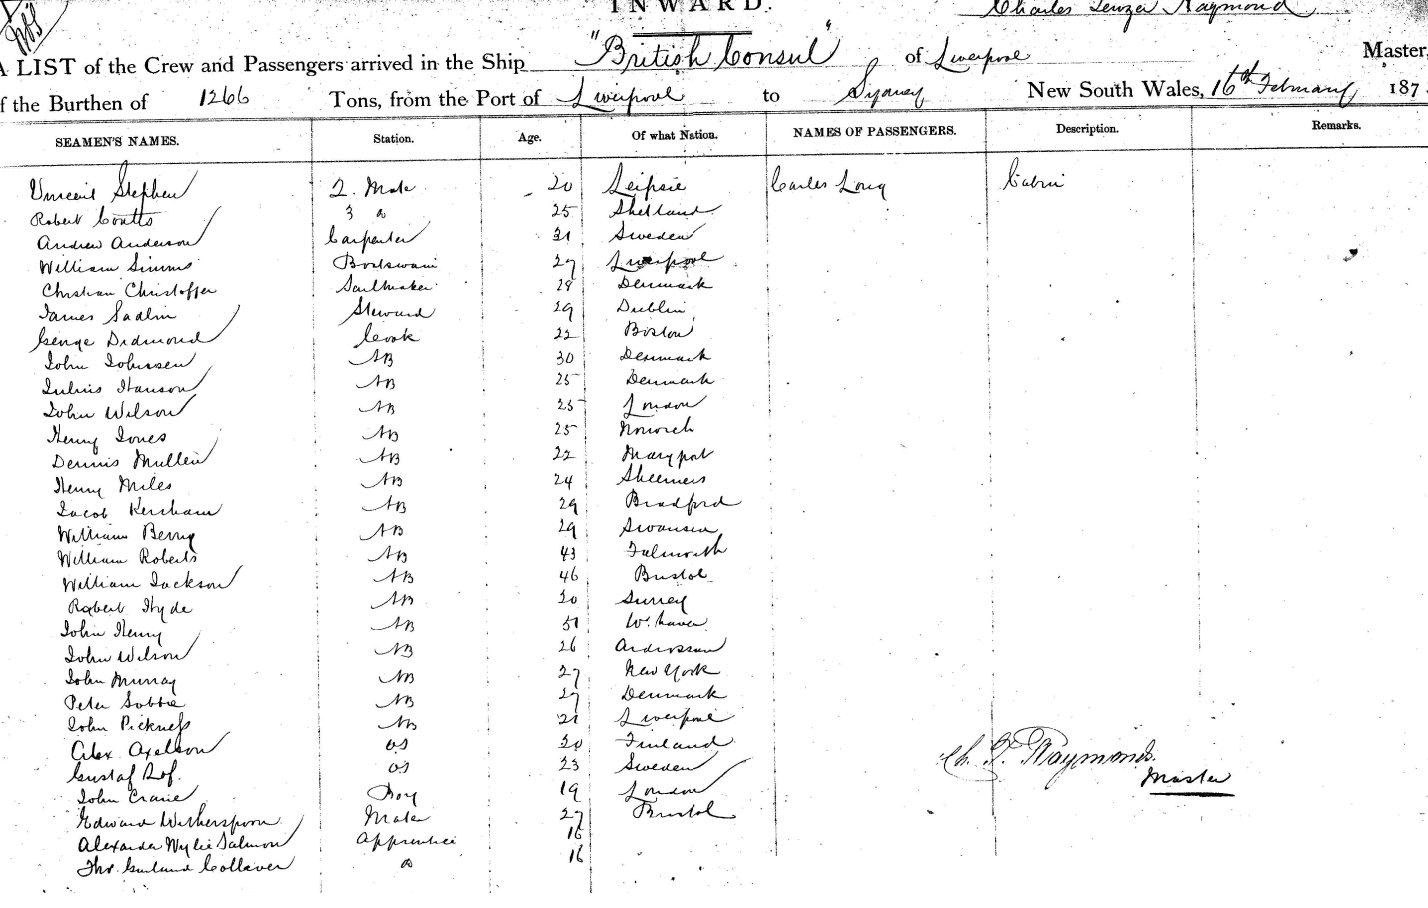 INWARD.
Charles Raymond
A LIST of the Crew and Passengers arrived in the Ship "British Consul" of Liverpool Master,
f the Burthen of 1266 Tons, from the Port of Liverpool to Sydney New South Wales, 16th February 187
SEAMEN'S NAMES. Station. Age. Of what Nation. NAMES OF PASSENGERS. Description. Remarks.
Stephen 2. Mate 20 Leipsic Carles Long Cabin
Robert Coutts 3 Do 25 Shetland
Andrew Anderson Carpenter 31 Sweden
William Simms Boatswain 27 Liverpool
Christian Christoffer Sailmaker 28 Denmark
James Sadlin Steward 29 Dublin
George Cook 22 Boston
John Johnssen AB 30 Denmark
Julius Hanson AB 25 Denmark
John Wilson AB 25 London
Henry Jones AB 25 Norwich
Dennis Mullen AB 22 Maryport
Henry Miles AB 24 Sheerness
Jacob Kersham AB 29 Bradford
William Berry AB 29 Swansea
William Roberts AB 43 Falmouth
William Jackson AB 46 Bristol
Robert Hyde AB 20 Surrey
John Henry AB 51 W. haven
John Wilson AB 26 Ardrossan
John Murray AB 27 New York
Peter AB 27 Denmark
John Pickness AB 21 Liverpool
Alex Axelson OS 20 Finland
Gustaf OS 23 Sweden
John Crane Boy 19 London
Edward Witherspoon Mate 27 Bristol
Alexander Wylie Salmon Apprentice 16
Thos Garland Collaver Do 16
Ch. Raymond
Master